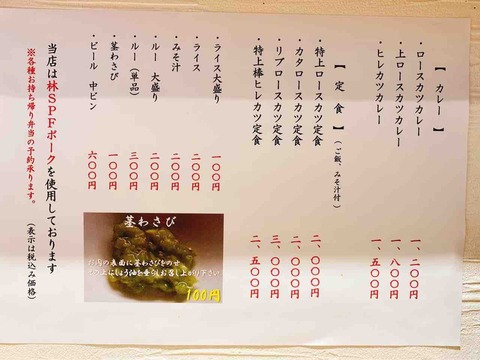 【カレー】
・ロースカツカレー 一、二〇〇円
・上ロースカツカレー 一、八〇〇円
・ヒレカツカレー 一、五〇〇円
【定食】(ご飯、みそ汁付)
・特上ロースカツ定食 二、〇〇〇円
・カタロースカツ定食 三、〇〇〇円
・リブロースカツ定食 二、〇〇〇円
・特上棒ヒレカツ定食 二、五〇〇円
・ライス大盛り 一〇〇円
・ライス 二〇〇円
・みそ汁 二〇〇円
・ルー 大盛り 二〇〇円
・ルー(単品) 三〇〇円
・茎わさび 一〇〇円
・ビール 中ビン 六〇〇円
茎わさび
お肉の表面に茎わさびをのせ
その上にしょう油を垂らしお召し上がり下さい
100円
当店は林SPFポークを使用しております
※各種お持ち帰り弁当の予約承ります。
(表示は税込み価格)